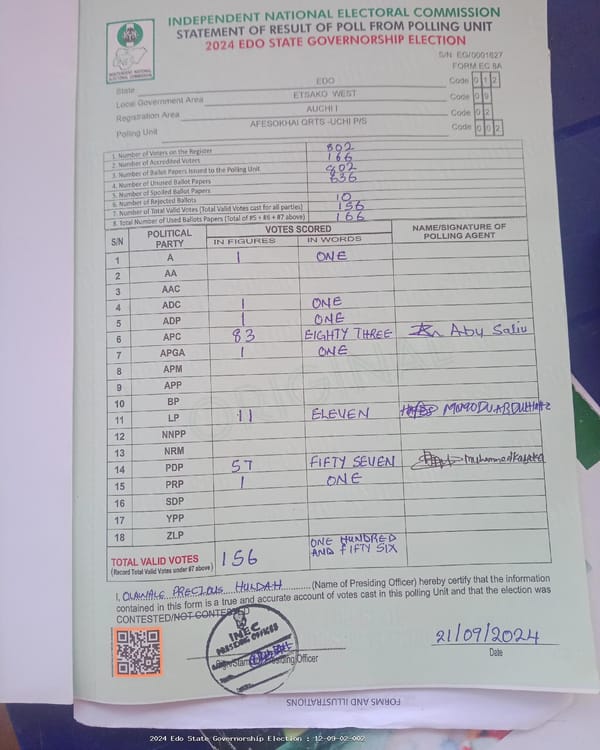 INDEPENDENT NATIONAL ELECTORAL COMMISSION
STATEMENT OF RESULT OF POLL FROM POLLING UNIT
2024 EDO STATE GOVERNORSHIP ELECTION
INEC
INDEPENDENT NATIONAL ELECTORAL COMMISSION
S/N: EG/0001627
FORM EC 8A
State EDO Code 0 1 2
Local Government Area ETSAKO WEST Code 0 9
Registration Area AUCHI I Code 0 2
Polling Unit AFESOKHAI QRTS -UCHI P/S Code 0 0 2
1. Number of Voters on the Register 802
2. Number of Accredited Voters 166
3. Number of Ballot Papers Issued to the Polling Unit 802
4. Number of Unused Ballot Papers 636
5. Number of Spoiled Ballot Papers
6. Number of Rejected Ballots 10
7. Number of Total Valid Votes (Total Valid Votes cast for all parties) 156
8. Total Number of Used Ballots Papers (Total of #5 + #6 + #7 above) 166
S/N POLITICAL PARTY VOTES SCORED NAME/SIGNATURE OF POLLING AGENT
IN FIGURES IN WORDS
1 A 1 ONE
2 AA
3 AAC
4 ADC 1 ONE
5 ADP 1 ONE
6 APC 83 EIGHTY THREE Abu Saliu
7 APGA 1 ONE
8 APM
9 APP
10 BP
11 LP 11 ELEVEN
12 NNPP
13 NRM
14 PDP 57 FIFTY SEVEN
15 PRP 1 ONE
16 SDP
17 YPP
18 ZLP
TOTAL VALID VOTES 156 ONE HUNDRED AND FIFTY SIX
(Record Total Valid Votes under #7 above)
ORIGINAL
I, OLAWALE PRECIOUS HULDAH (Name of Presiding Officer) hereby certify that the information
contained in this form is a true and accurate account of votes cast in this polling Unit and that the election was
CONTESTED/NOT CONTESTED
INEC
PRESIDING OFFICER
Sign/Stamp Presiding Officer
21/09/2024
Date
FORMS AND ILLUSTRATIONS
2024 Edo State Governorship Election : 12-09-02-002